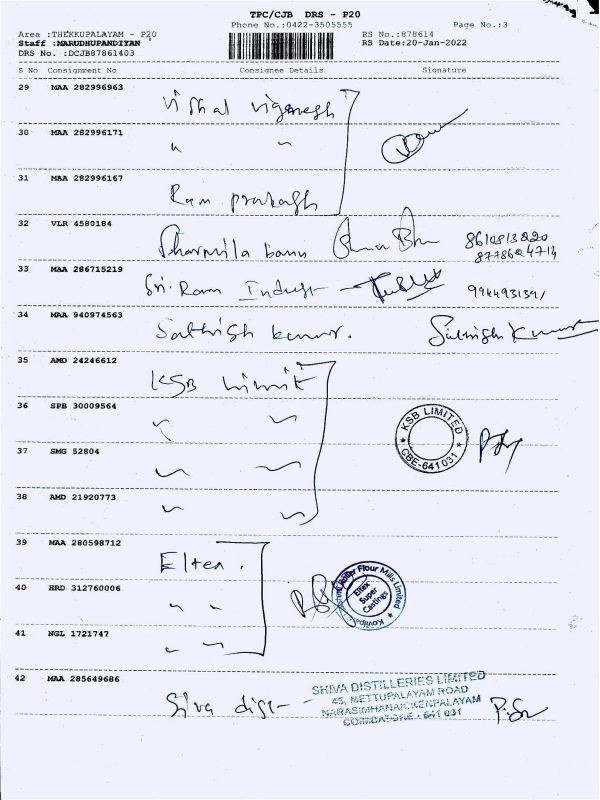 TPC/CJB DRS - P20
Phone No.:0422-3505555 Page No.:3
Area :THEKKUPALAYAM - P20 RS No.:878614
Staff :MARUDHUPANDIYAN RS Date:20-Jan-2022
DRS No. :DCJB87861403
S No Consignment No Consignee Details Signature
29 MAA 282996963
Vishal Vignesh
30 MAA 282996171
〃 〃
31 MAA 282996167
Ram prakash
32 VLR 4580184
Sharmila banu 8610813220
8778624714
33 MAA 286715219
Sri Ram Indust
34 MAA 940974563
Sathish kumar. Sathish Kumar
35 AMD 24246612
KSB Limit
36 SPB 30009564
〃 〃
KSB LIMITED
CBE-641 031
37 SMG 52804
〃 〃
38 AMD 21920773
〃 〃
39 MAA 280598712
Eltex.
40 HRD 312760006
〃 〃
Roller Flour Mills Limited
Eltex
Super
Castings
41 NGL 1721747
〃 〃
42 MAA 285649686
Siva dist
SHIVA DISTILLERIES LIMITED
45, METTUPALAYAM ROAD
NARASIMHANAICKENPALAYAM
COIMBATORE - 641 031